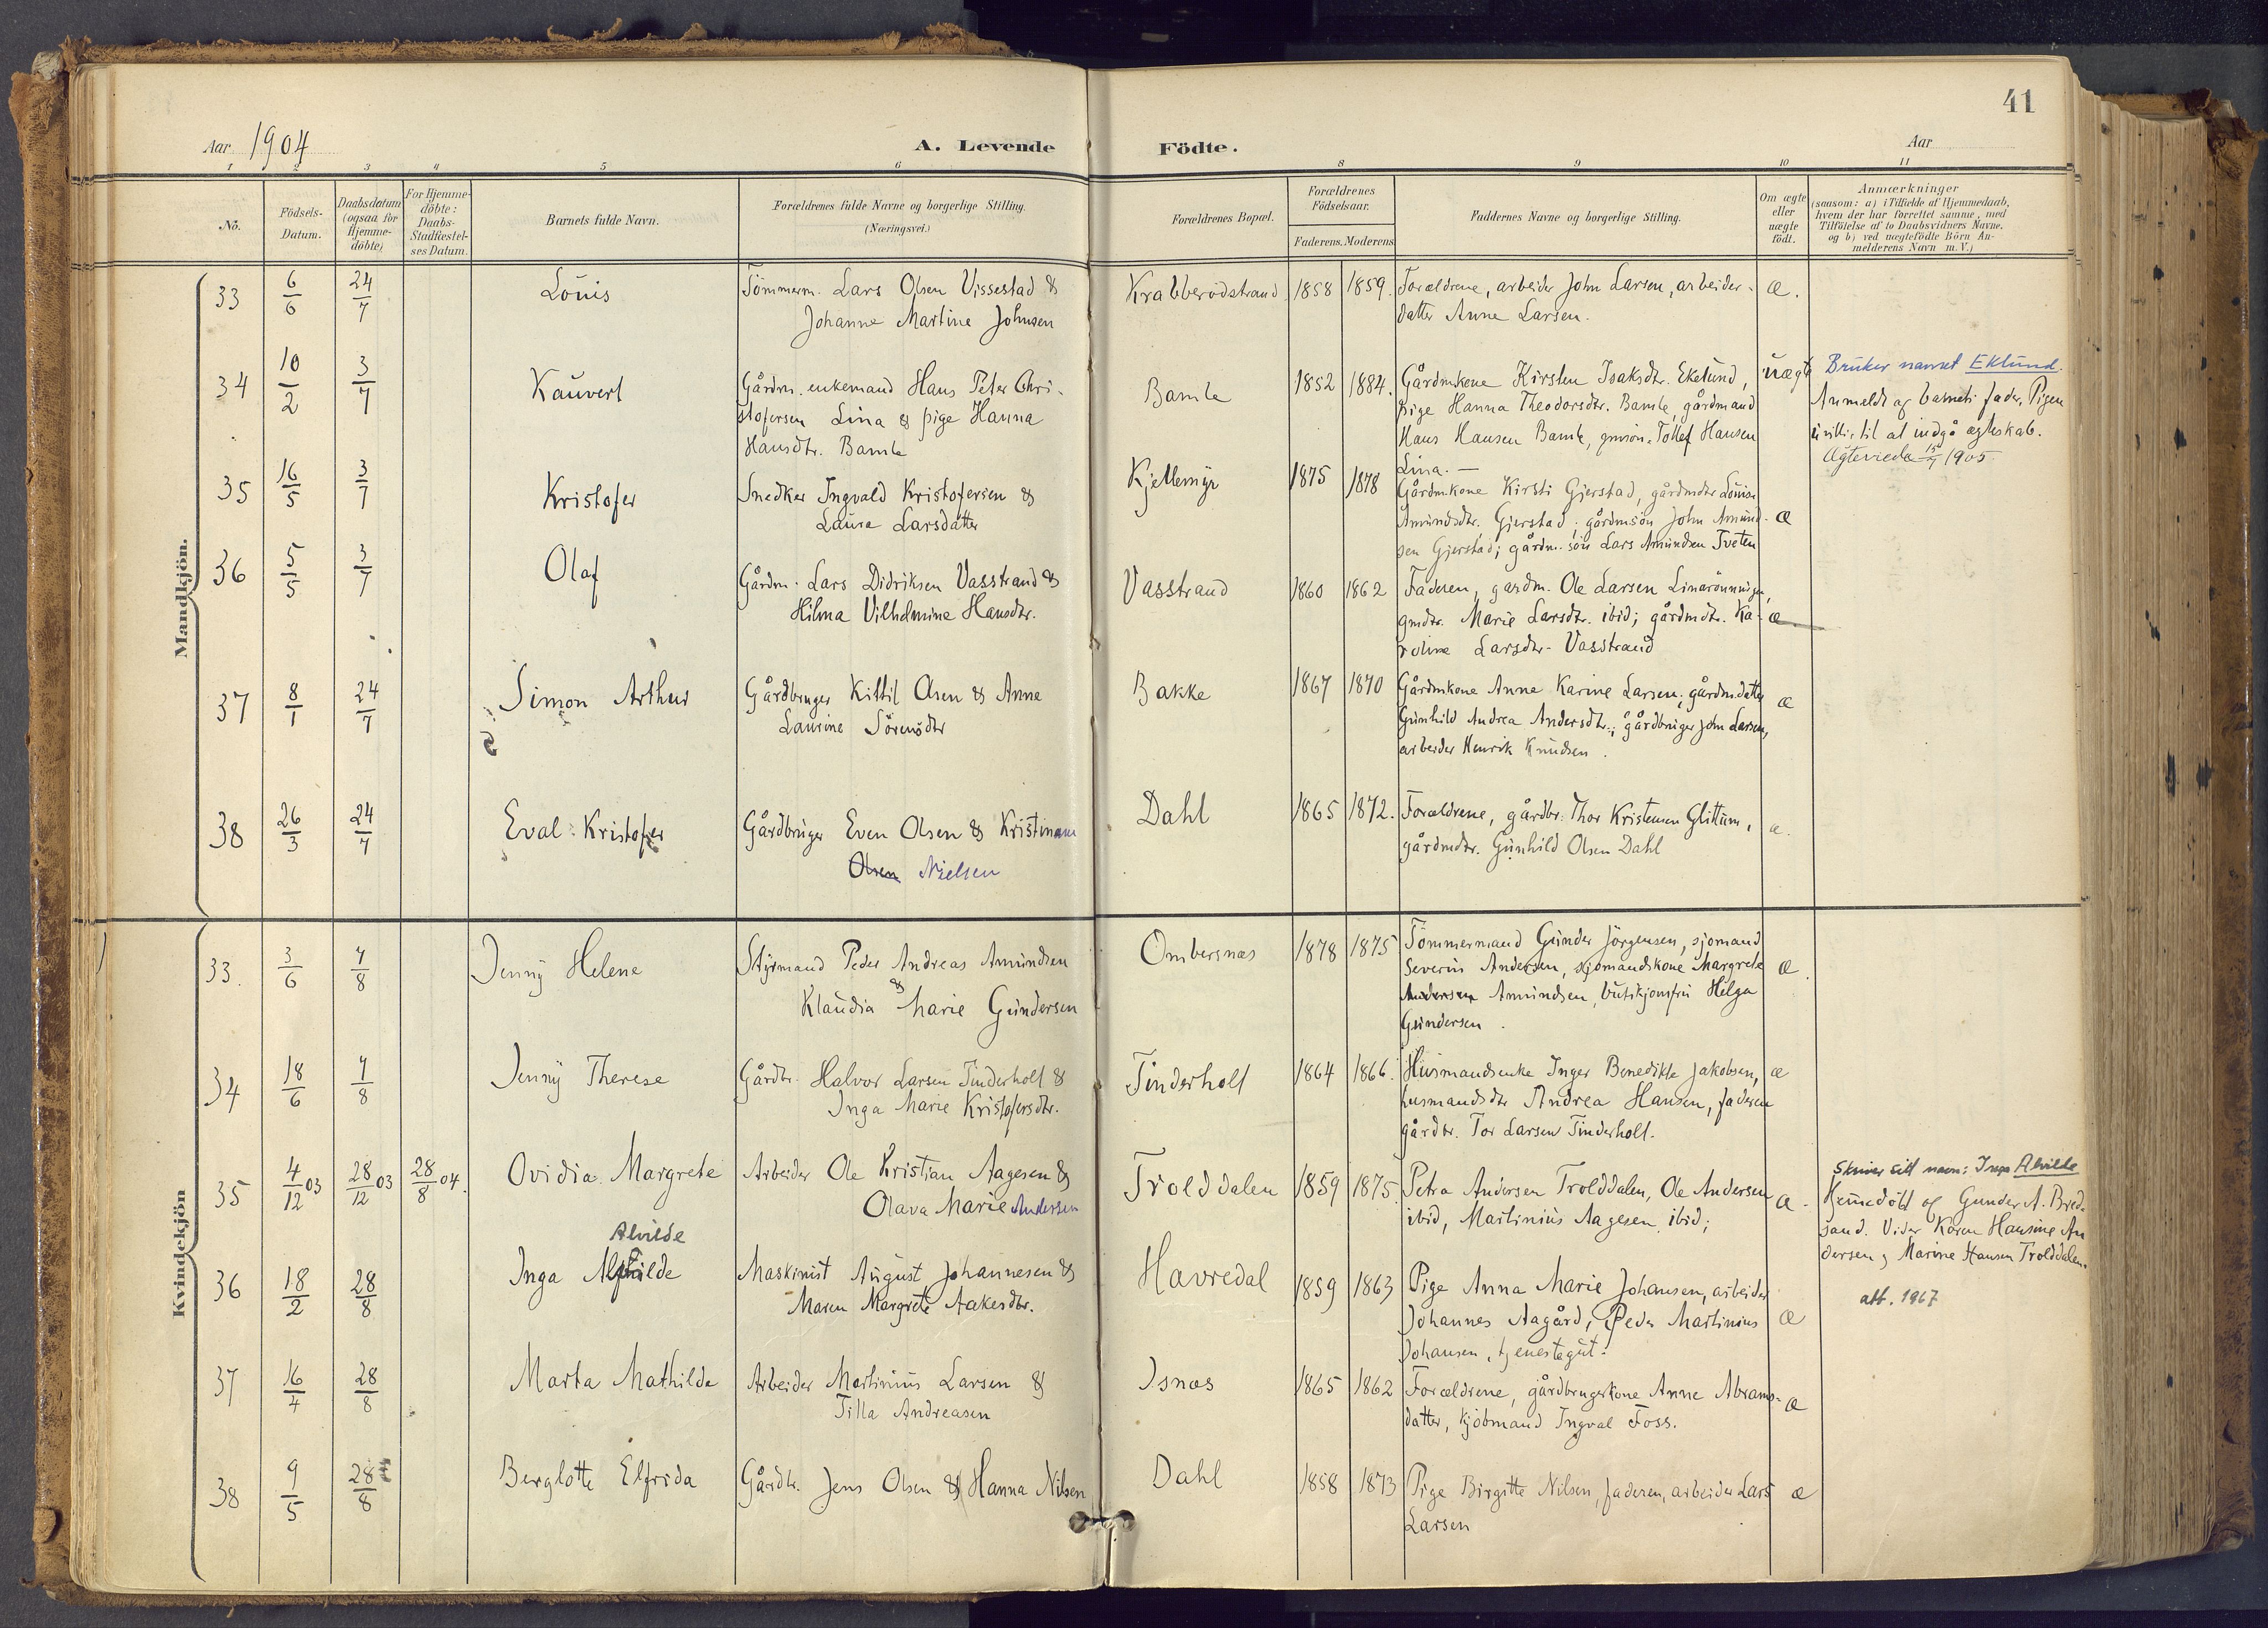 41
Aar 1904
A. Levende Födte.
Aar
1 2 3 4 5 6 8 9 10 11
No.
Födsels-Datum.
Daabsdatum (ogsaa for Hjemme-döbte)
For Hjemme-döbte: Daabs-Stadfæstel-ses Datum.
Barnets fulde Navn.
Forældrenes fulde Navne og borgerlige Stilling. (Næringsvei.)
Forældrenes Bopæl.
Forældrenes Födselsaar.
Faderens. Moderens
Faddernes Navne og borgerlige Stilling.
Om ægte eller uægte födt.
Anmærkninger
(saasom: a) i Tilfælde af Hjemmedaab,
hvem der har forrettet samme, med
Tilföielse af to Daabsvidners Navne,
og b) ved uægtefödte Börn An-
melderens Navn m. V.)
Mandkjön.
33 6/6 24/7 Louis
Tömmerm. Lars Olsen Vissestad &
Johanne Martine Johnsen
Krabberödstrand 1858 1859.
Forældrene, arbeider John Larsen, arbeider-
datter Anne Larsen.
æ.
34 10/2 3/7 Kauvert
Gårdm. enkemand Hans Peter Chri-
stofersen Lina & pige Hanna
Hansdtr. Bamle
Bamle 1852 1884.
Gårdmkone Kirsten Isaksdtr. Ekelund,
pige Hanna Theodorsdtr. Bamle, gårdmand
Hans Hansen Bamle, gmsön. Tollef Hansen
Lina. —
uægte
Bruker navnet Eklund.
Anmeldt af barnets fader, Pigen
uvillig til at indgå ægteskab.
Ægteviede 15/7 1905
35 16/5 3/7 Kristofer
Snedker Ingvald Kristofersen &
Laura Larsdatter
Kjellemyr 1875 1878
Gårdmkone Kirsti Gjerstad, gårdmdtr Louise
Amundsdtr. Gjerstad; gårdmsön John Amund-
sen Gjerstad; gårdm. sön Lars Amundsen Tveten
æ
36 5/5 3/7 Olaf
Gårdm. Lars Didriksen Vasstrand &
Hilma Vilhelmine Hansdtr.
Vasstrand 1860 1862
Faderen, gardm. Ole Larsen
gmdtr. Marie Larsdtr. ibid; gårdmdtr. Ka-
roline Larsdtr. Vasstrand
æ
37 8/1 24/7 Simon Arthur
Gårdbruger Kittil Olsen & Anne
Laurine Sörensdtr
Bakke 1867 1870
Gårdmkone Anne Karine Larsen; gårdmdatter
Gunhild Andrea Andersdtr.; gårdbruger John Larsen,
arbeider Henrik Knudsen.
æ
38 26/3 24/7 Eval Kristofer
Gårdbruger Even Olsen & Kristinane
Olsen Nielsen
Dahl 1865 1872.
Forældrene, gårdbr. Thor Kristensen Glittum,
gårdmdtr. Gunhild Olsen Dahl
æ.
Kvindekjön
33. 3/6 7/8 Jenny Helene
Styrmand Peder Andreas Amundsen
& Klaudia Marie Gundersen
Ombersnæs 1878 1875
Tömmermand Gunder Jörgensen, sjömand
Severin Andersen, sjömandskone Margrete
Andersen Amundsen, butikjomfru Helga
Gundersen.
æ.
34 18/6 7/8 Jenny Therese
Gårdbr. Halvor Larsen Tinderholt &
Inga Marie Kristofersdtr.
Tinderholt 1864 1866.
Husmandsenke Inger Benedikte Jakobsen,
husmandsdtr Andrea Hansen, faderen
gårdbr. Tor Larsen Tinderholt.
æ
35 4/12 03 28/12 03 28/8 04. Ovidia Margrete
Arbeider Ole Kristian Aagesen &
Olava Marie Andersen
Trolddalen 1859 1875.
Petra Andersen Trolddalen, Ole Andersen
ibid, Martinius Aagesen ibid;
æ.
Skriver sitt navn: Inga Alvilde
Hjemedöbt af Gunder A. Bred-
sand. Vider Karen Hansine An
dersen, Marine Hansen Trolddalen.
Alvilde
36 18/2 28/8 Inga Alfhilde
Maskinist August Johannesen &
Maren Margrete Aakesdtr.
Havredal 1859 1863
Pige Anna Marie Johansen, arbeider
Johannes Aagård, Peder Martinius
Johansen, tjenestegut.
æ
att. 1967
37 16/4 28/8 Marta Mathilde
Arbeider Martinius Larsen &
Tilla Andreasen
Isnæs 1865 1862
Forældrene, gårdbrugerkone Anne Abrams-
datter, kjöbmand Ingval Foss.
æ
38 9/5 28/8 Berglotte Elfrida
Gårdbr. Jens Olsen & Hanna Nilsen
Dahl 1858 1873
Pige Birgitte Nilsen, faderen, arbeider Lars
Larsen
æ